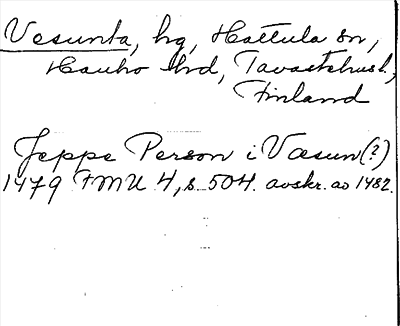 Vesunta, hg, Hattula sn,
Hauho hrd, Tavastehusl.,
Finland
Jeppe Person i Væsun(?)
1479 FMU 4, s. 504. avskr. av 1482.